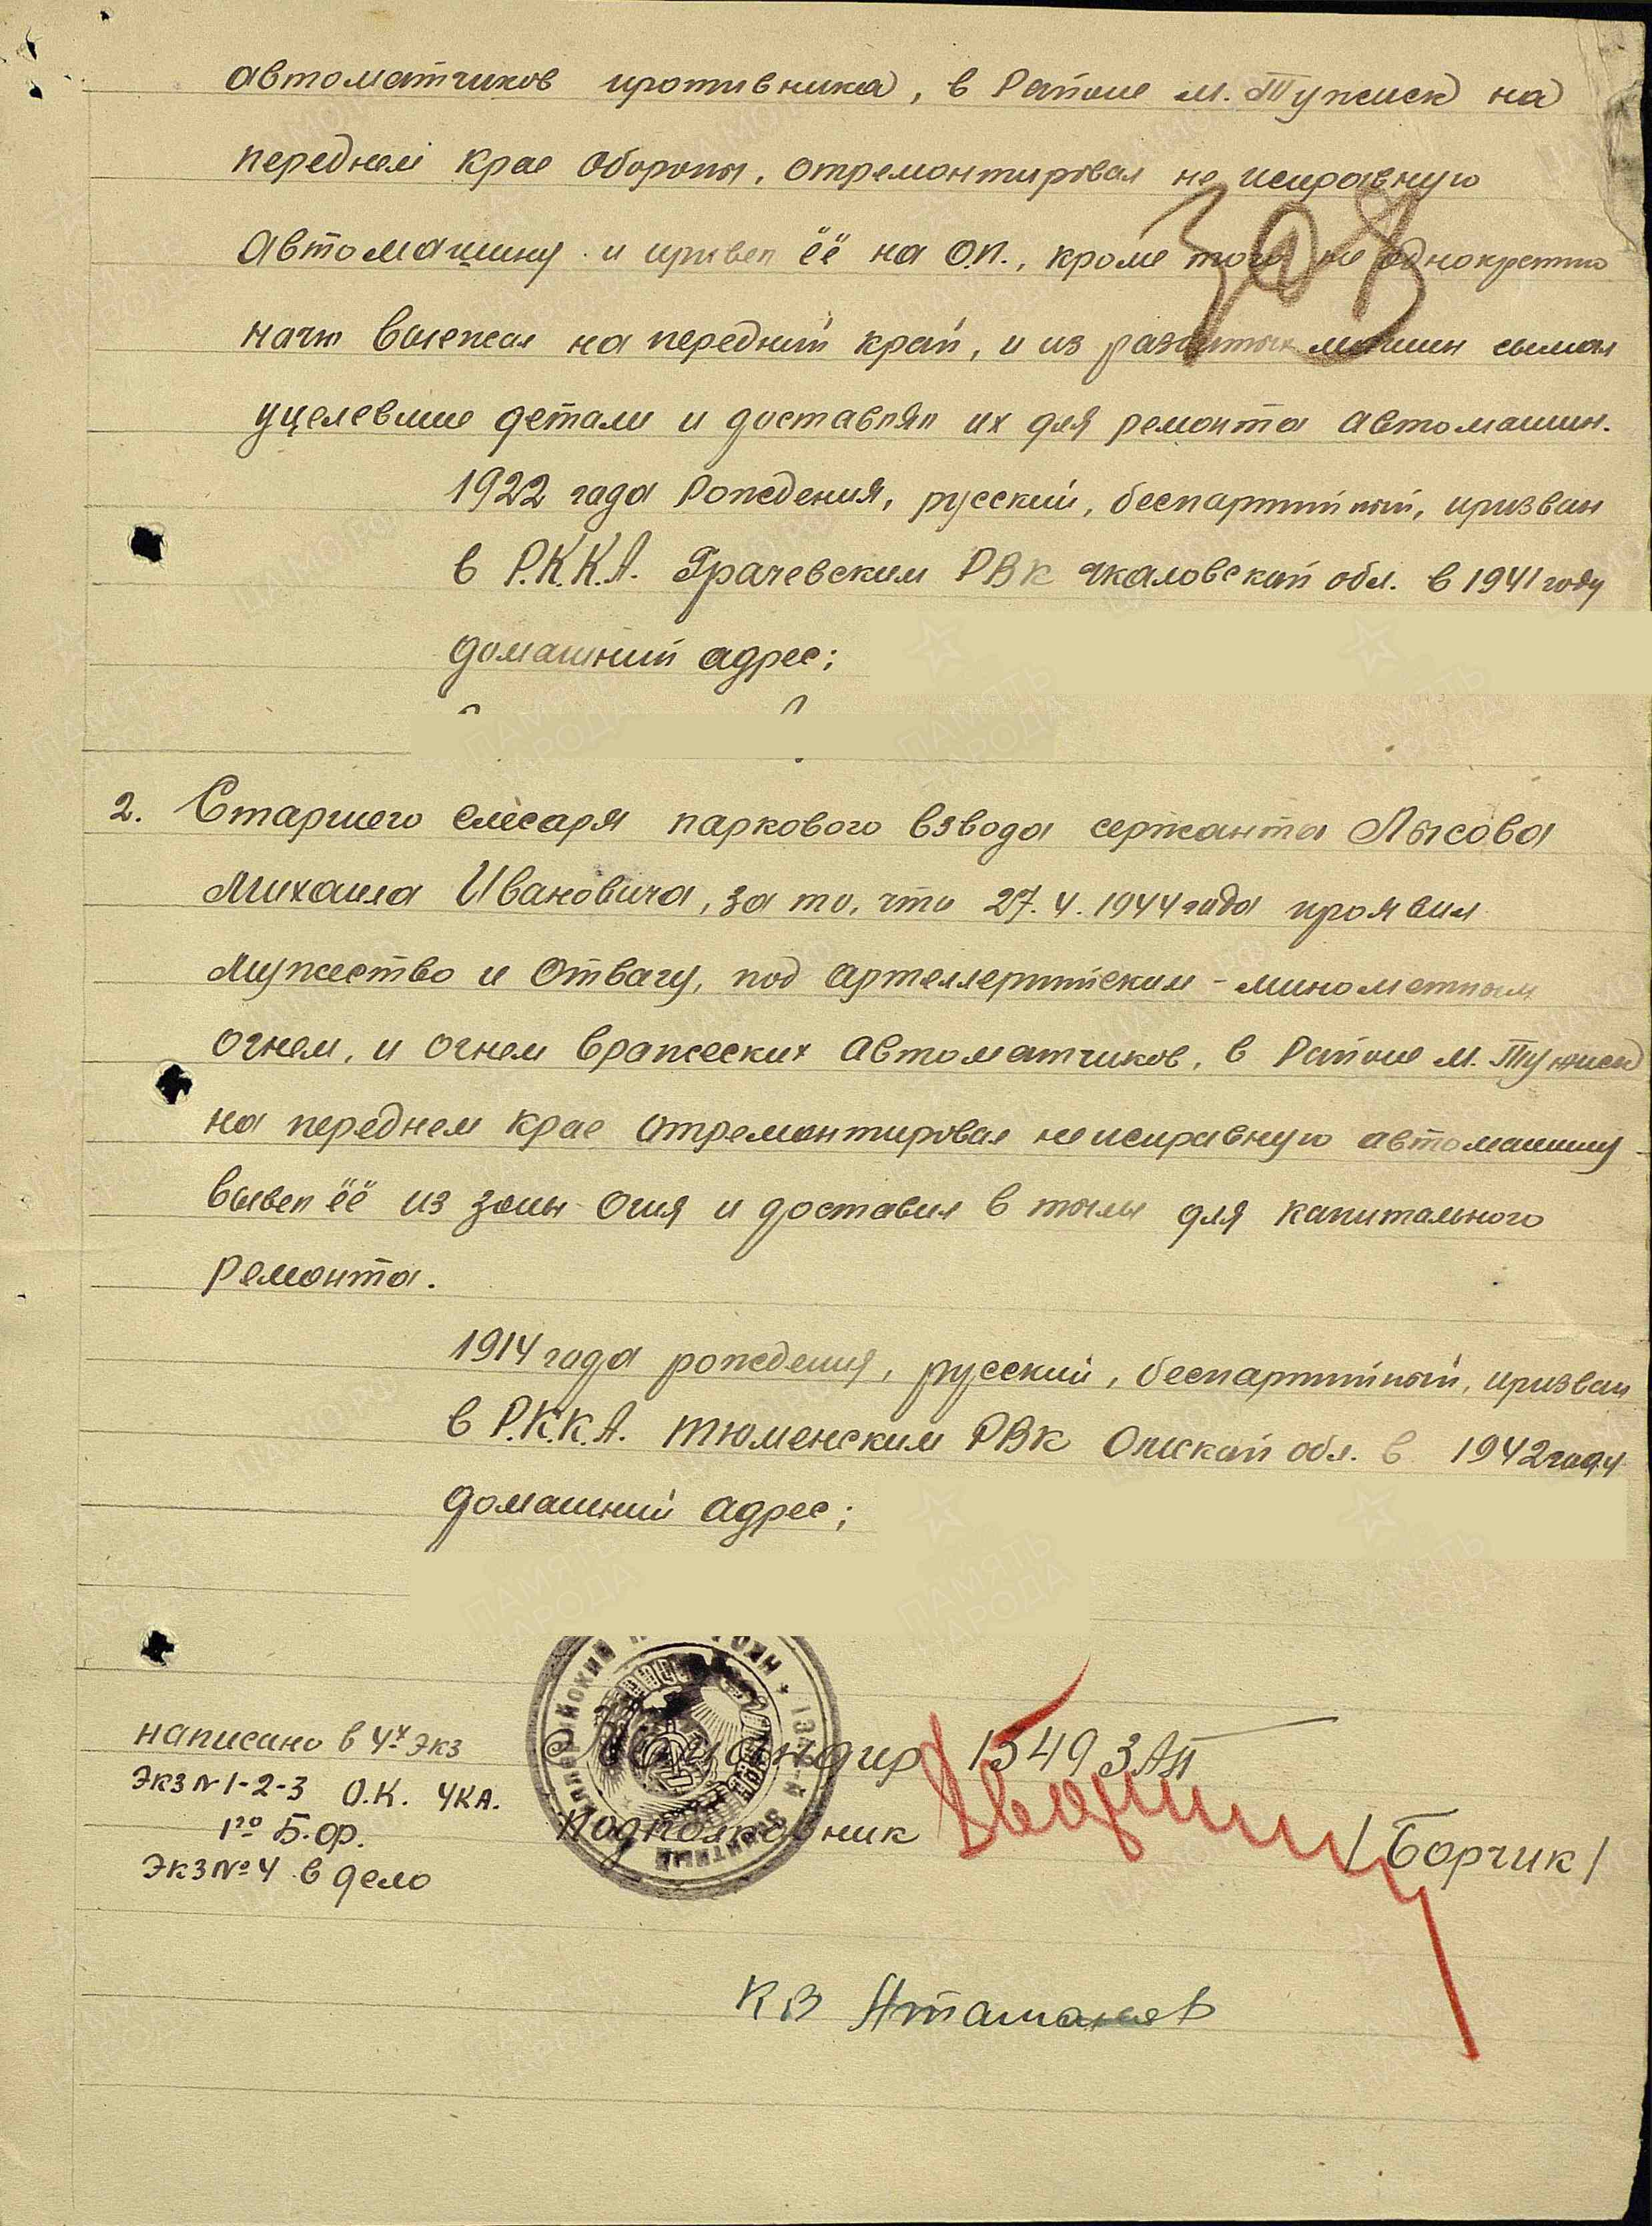 автоматчиков противника, в Районе м. Тужиск на
переднем крае обороны, отремонтировал не исправную
автомашину и привел её на О.П., кроме того не однократно
начю выежал на передний край, и из разбитых машин сымал
уцелевшие детали и доставлял их для ремонта автомашин.
308
1922 года Рождения, русский, беспартийный, призван
в Р.К.К.А. Грачевским РВК чкаловской обл. в 1941 году
домашний адрес;
2. Старшего слесаря паркового взвода сержанта Лысова
Михаила Ивановича, за то, что 27.4.1944 года проявил
Мужество и Отвагу, под артеллерийским - минометным
огнем, и огнем вражеских автоматчиков, в Районе м. Тужиск
на переднем крае отремонтировал неисправную автомашину
вывел её из зоны огня и доставил в тылы для капитального
ремонта.
1914 года рождения, русский, беспартийный, призван
в Р.К.К.А. Тюменским РВК Омской обл. в 1942 году
домашний адрес;
написано в 4х экз
Экз № 1-2-3 О.К. ЧКА.
1го Б.ор.
Экз № 4 в дело
Командир 1549 ЗАП
Подполковник /Борчик/
КВ Атаманов